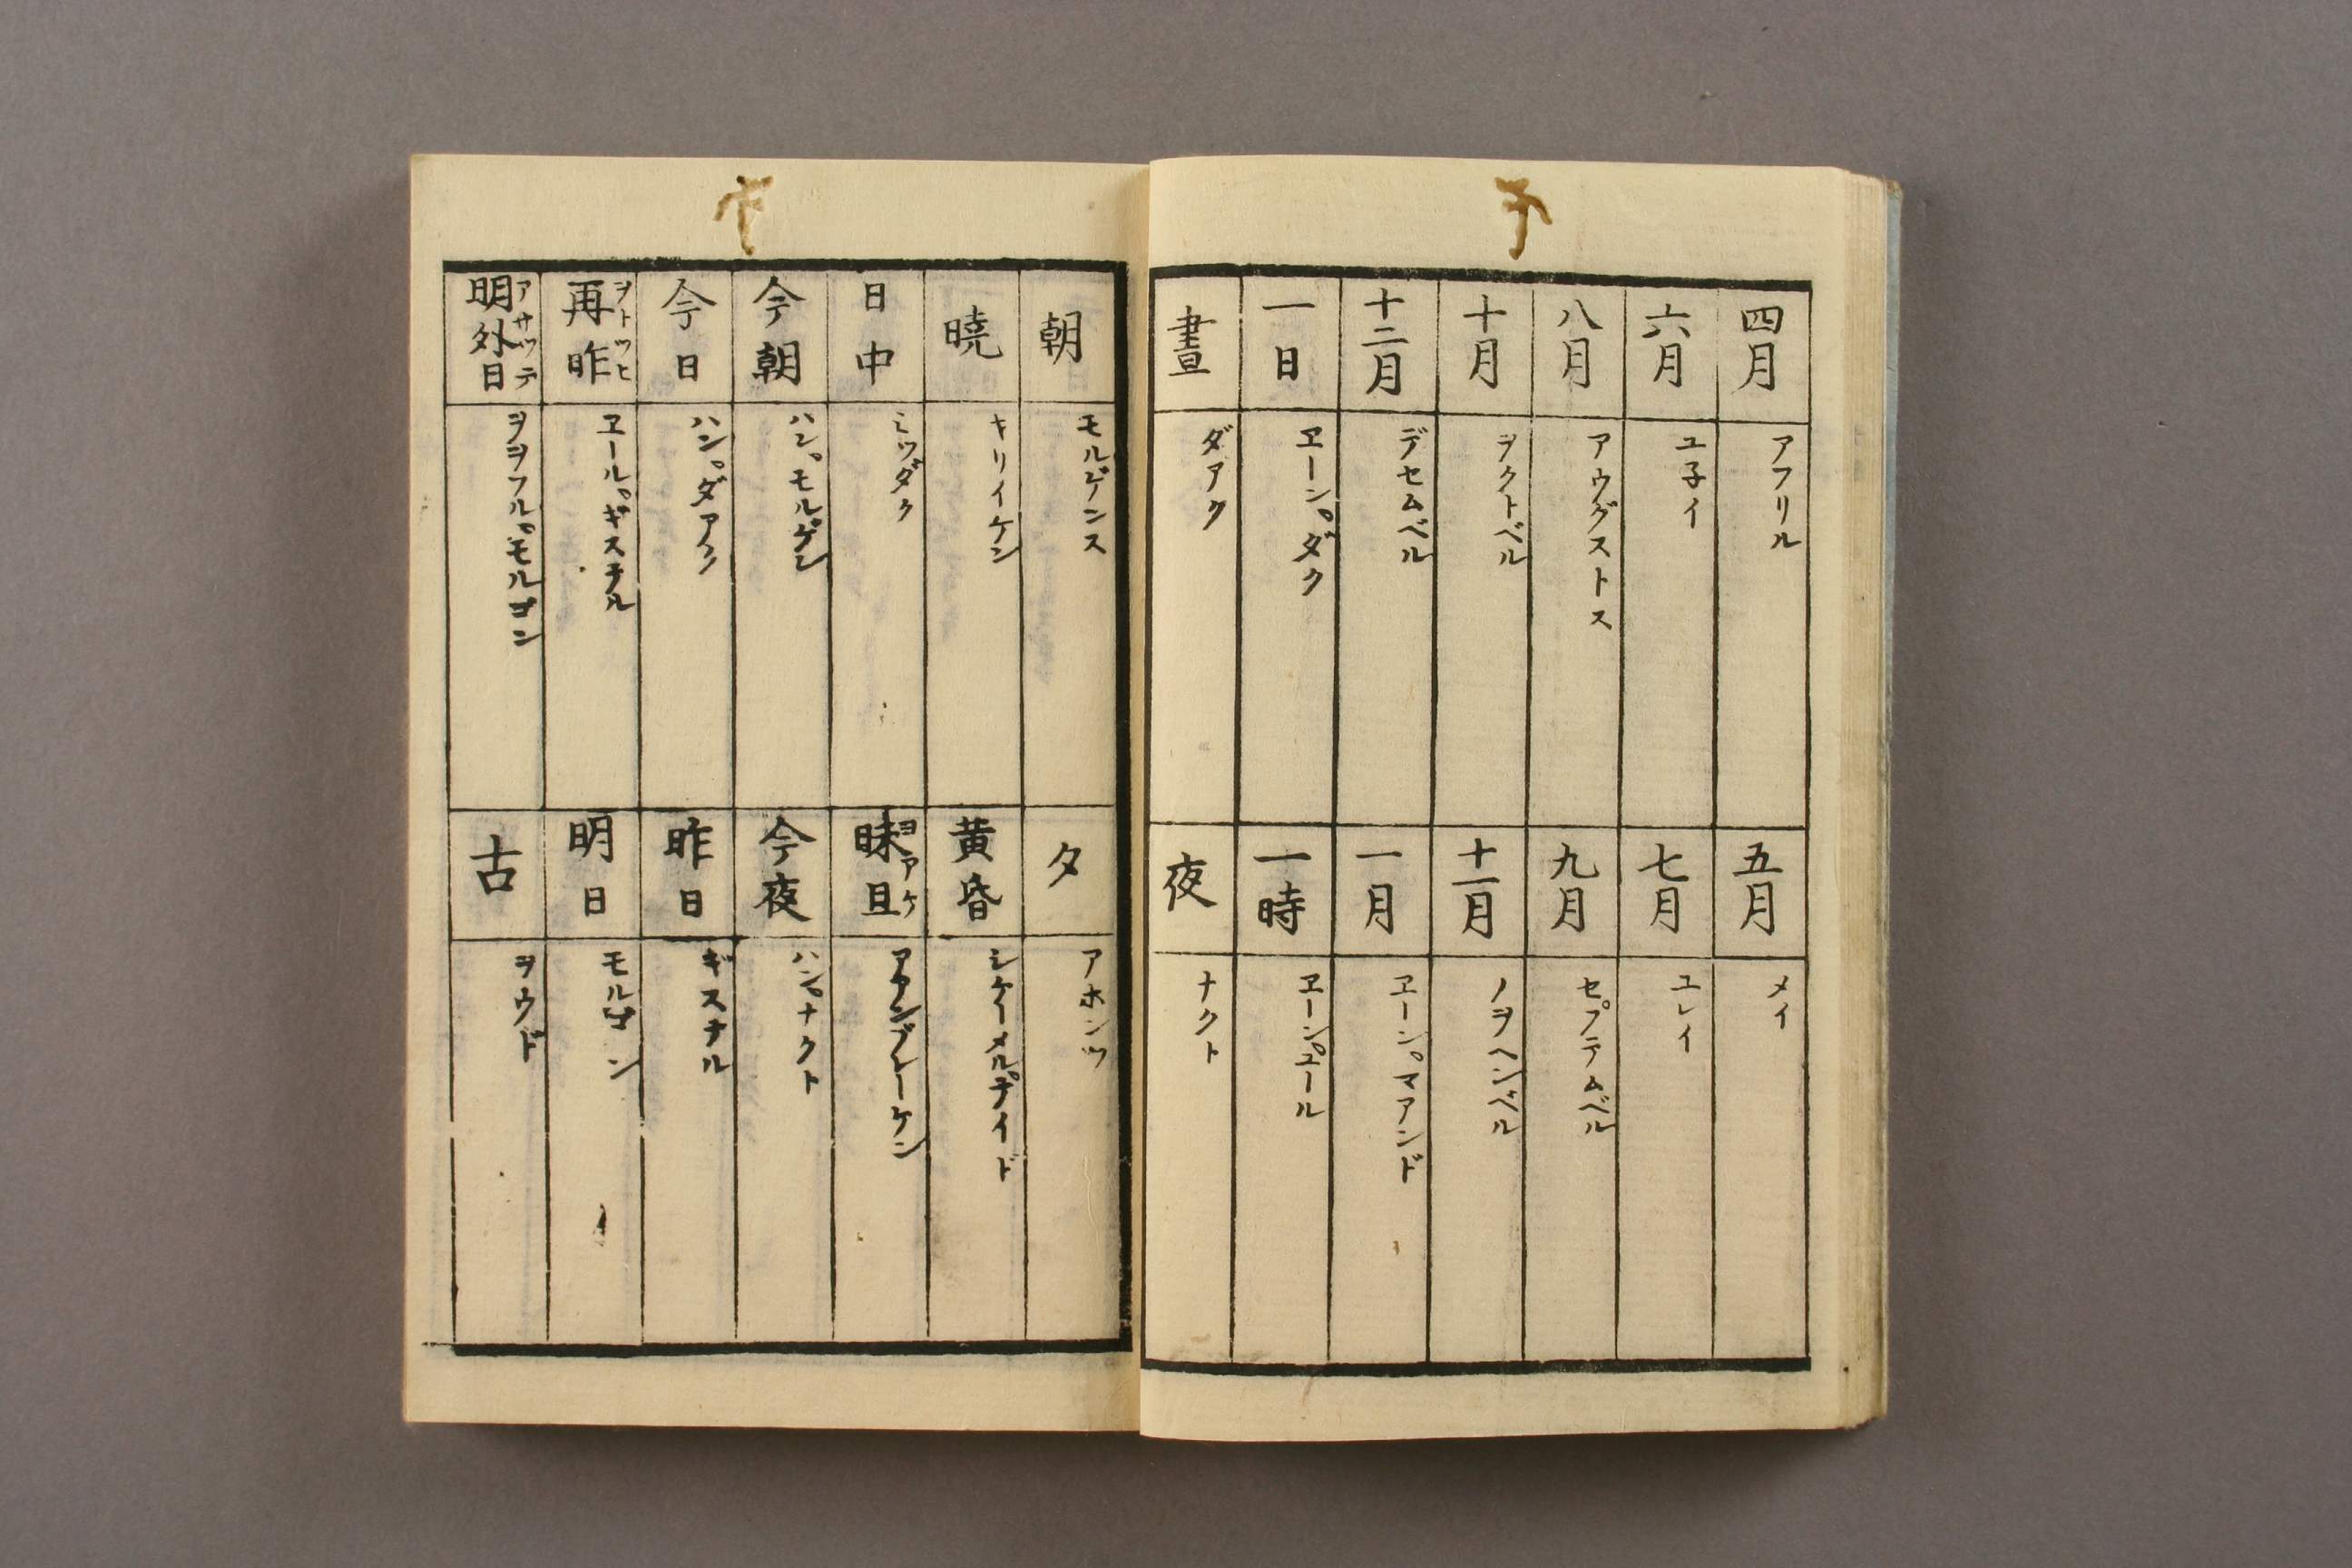 四月
アフリル
五月
メイ
六月
ユ子イ
七月
ユレイ
八月
アウグストス
九月
セプテムベル
十月
ヲクトベル
十一月
ノヲヘンベル
十二月
デセムベル
一月
ヱーン。マアンド
一日
ヱーン。ダク
一時
ヱーン。ユール
晝
ダアク
夜
ナクト
朝
モルゲンス
夕
アホンツ
暁
キリイケン
黄昏
シケーメル。テイド
日中
ミツダク
昧旦
ヨアケ
アアンブレーケン
今朝
ハン。モルゲン
今夜
ハン。ナクト
今日
ハン。ダアク
昨日
ギステル
再昨
ヲトツヒ
ヱール。ギステル
明日
モルゴン
明外日
アサツテ
ヲヲフル。モルゴン
古
ヲウド